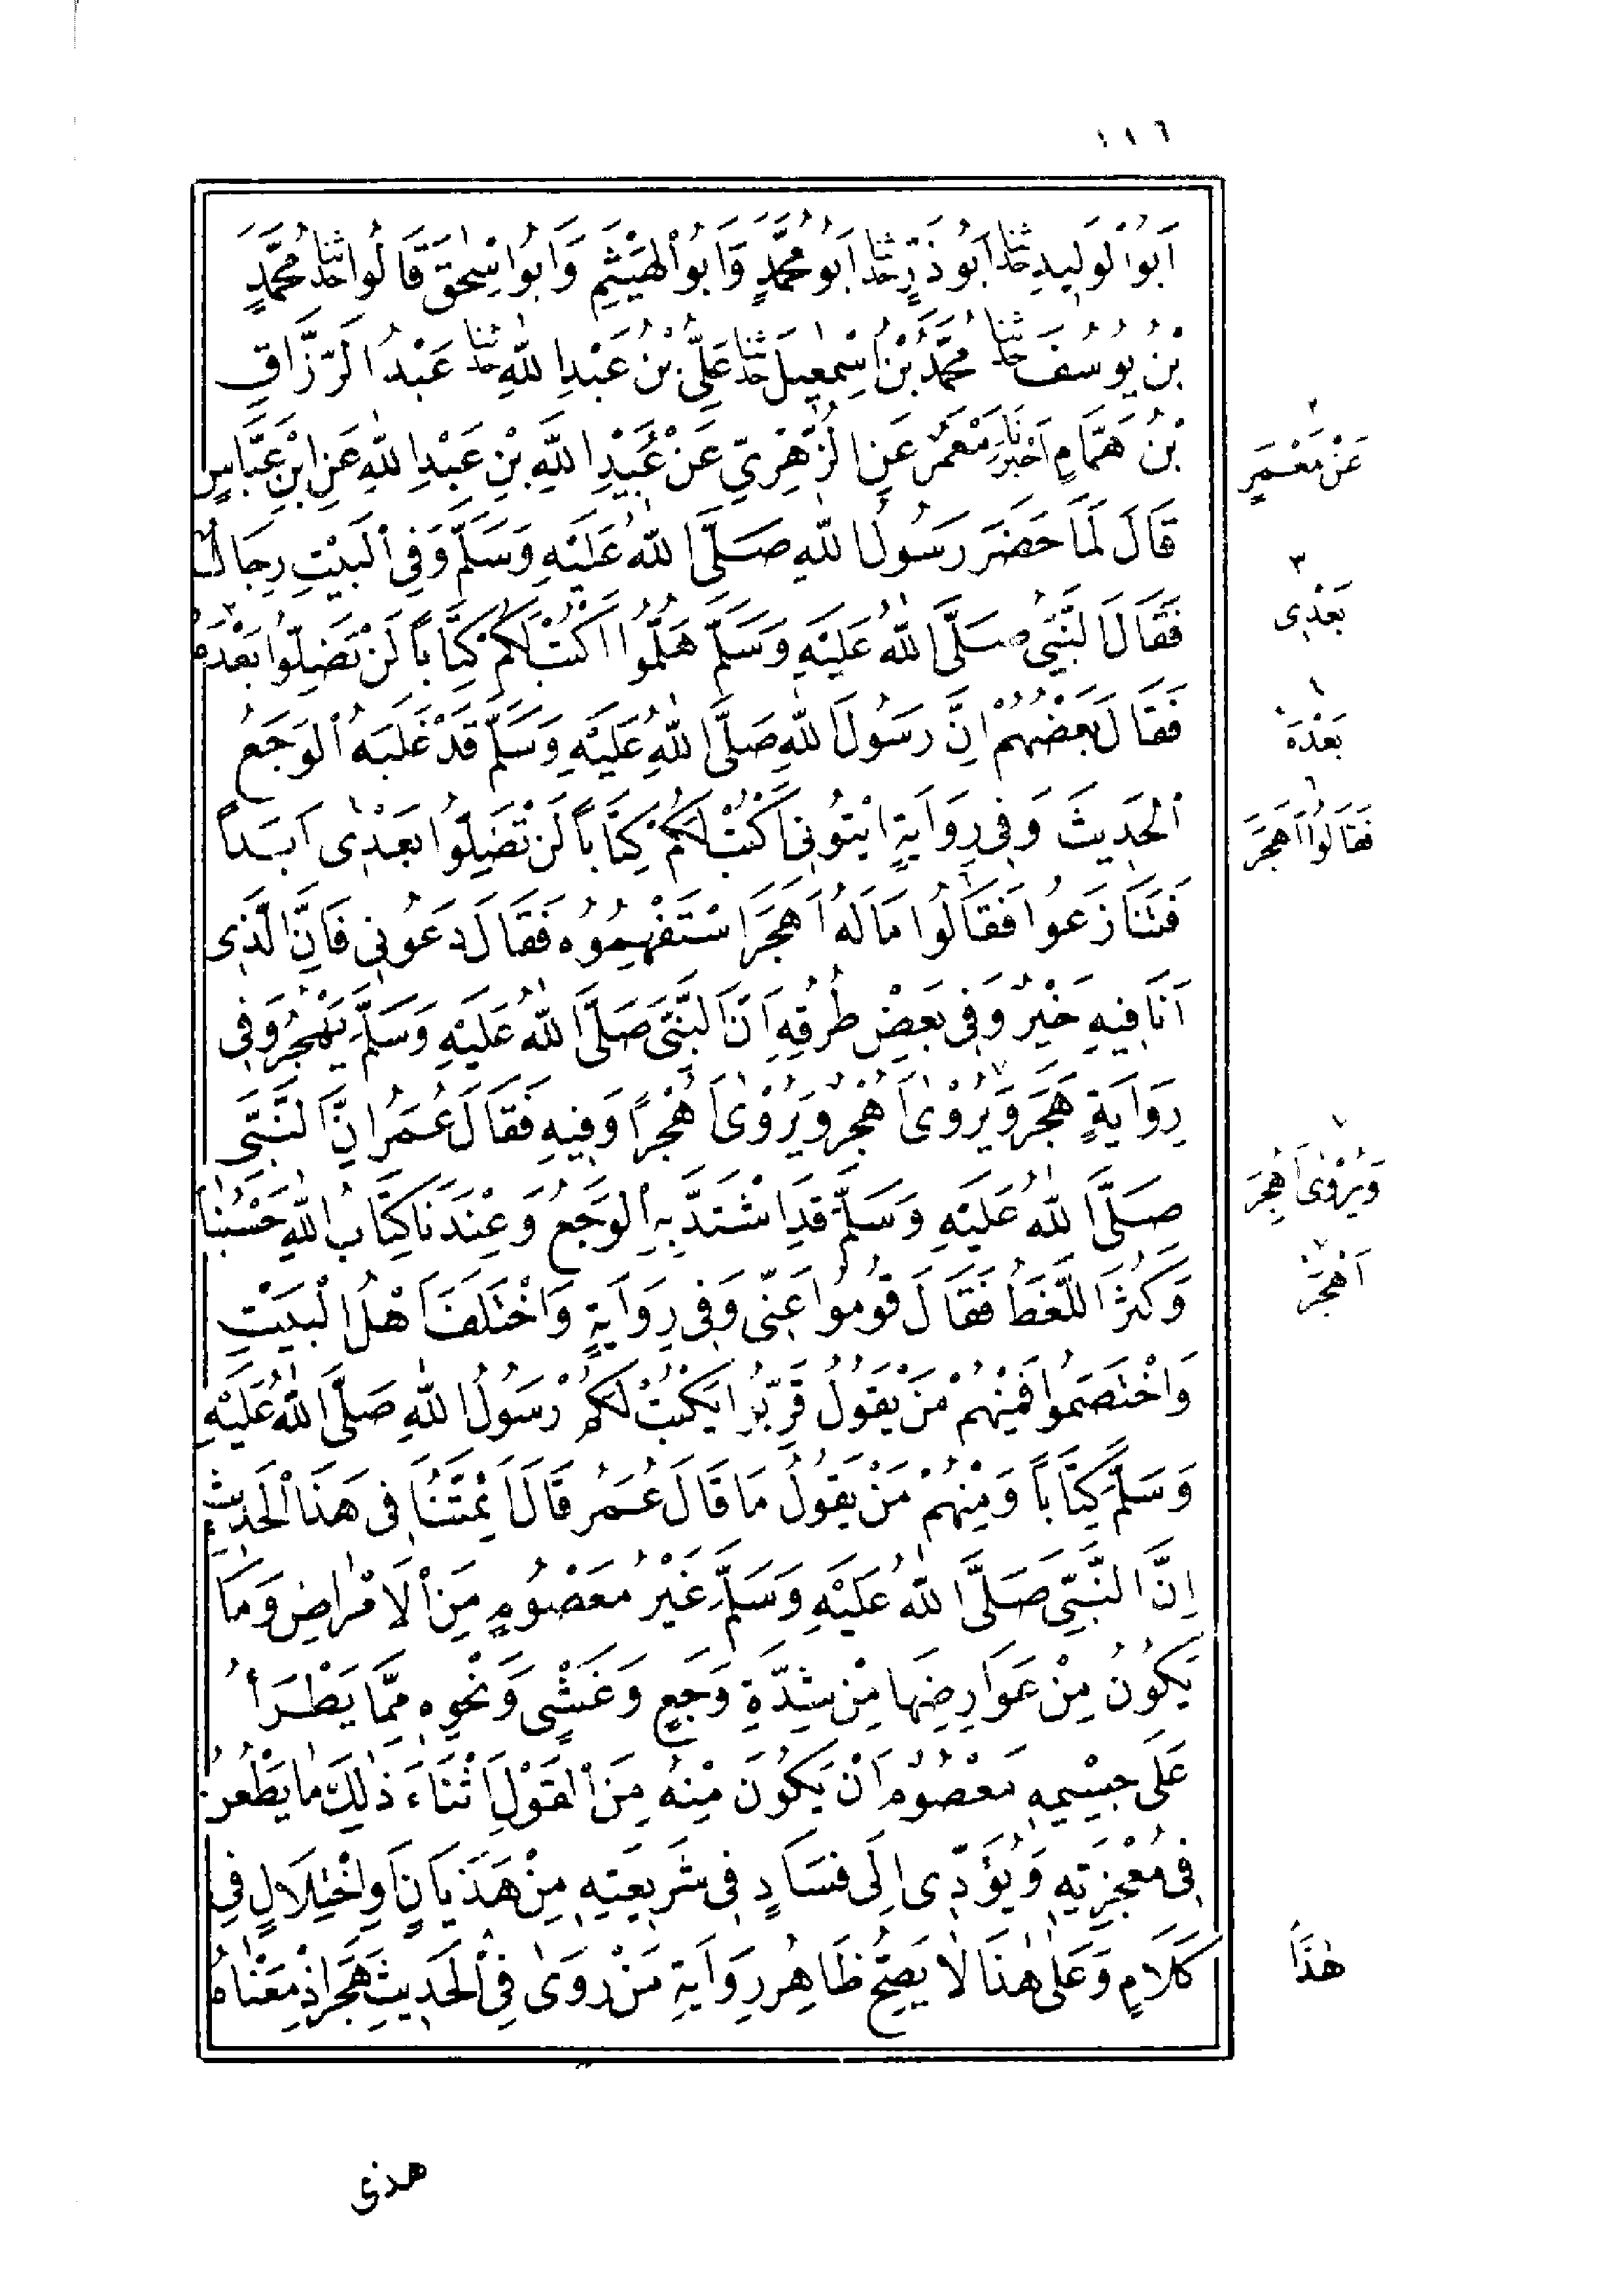 ١٨٦
اَبُوالْوَلِيدِ حَدَّثَنَا اَبُو ذَرٍّ حَدَّثَنَا اَبُو مُحَمَّدٍ وَاَبُو الْهَيْثَمِ وَاَبُو اِسْحٰقَ قَالُوا حَدَّثَنَا مُحَمَّدُ
بْنُ يُوسُفَ حَدَّثَنَا مُحَمَّدُ بْنُ اِسْمٰعِيلَ حَدَّثَنَا عَلِيُّ بْنُ عَبْدِ اللّٰهِ حَدَّثَنَا عَبْدُ الرَّزَّاقِ
بْنُ هَمَّامٍ اَخْبَرَنَا مَعْمَرٌ عَنِ الزُّهْرِيِّ عَنْ عُبَيْدِ اللّٰهِ بْنِ عَبْدِ اللّٰهِ عَنِ ابْنِ عَبَّاسٍ
عَنْ مَعْمَرٍ
قَالَ لَمَّا حَضَرَ رَسُولُ اللّٰهِ صَلَّى اللّٰهُ عَلَيْهِ وَسَلَّمَ وَفِى الْبَيْتِ رِجَالٌ
فَقَالَ النَّبِيُّ صَلَّى اللّٰهُ عَلَيْهِ وَسَلَّمَ هَلُمُّوا اَكْتُبْ لَكُمْ كِتَاباً لَنْ تَضِلُّوا بَعْدَهُ
٣ بَعْدِى
فَقَالَ بَعْضُهُمْ اِنَّ رَسُولَ اللّٰهِ صَلَّى اللّٰهُ عَلَيْهِ وَسَلَّمَ قَدْ غَلَبَهُ الْوَجَعُ
بَعْدَهُ
اَلْحَدِيثَ وَفِى رِوَايَةٍ ايْتُونِى اَكْتُبْ لَكُمْ كِتَاباً لَنْ تَضِلُّوا بَعْدِى اَبَداً
٦ فَقَالُوا اَهَجَرَ
فَتَنَازَعُوا فَقَالُوا مَالَهُ اَهَجَرَ اسْتَفْهِمُوهُ فَقَالَ دَعُونِى فَاِنَّ الَّذِى
اَنَا فِيهِ خَيْرٌ وَفِى بَعْضِ طُرُقِهِ اَنَّ النَّبِىَّ صَلَّى اللّٰهُ عَلَيْهِ وَسَلَّمَ يَهْجُرُ وَفِى
رِوَايَةٍ هَجَرَ وَيُرْوٰى اَهُجْرٌ وَيُرْوٰى اَهُجْراً وَفِيهِ فَقَالَ عُمَرُ اِنَّ النَّبِىَّ
صَلَّى اللّٰهُ عَلَيْهِ وَسَلَّمَ قَدِ اشْتَدَّ بِهِ الْوَجَعُ وَعِنْدَنَا كِتَابُ اللّٰهِ حَسْبُنَا
٧ وَيُرْوٰى اَهُجِرَ
وَكَثُرَ اللَّغَطُ فَقَالَ قُومُوا عَنِّى وَفِى رِوَايَةٍ وَاخْتَلَفَ اَهْلُ الْبَيْتِ
اَهْجَرَ
وَاخْتَصَمُوا فَمِنْهُمْ مَنْ يَقُولُ قَرِّبُوا يَكْتُبْ لَكُمْ رَسُولُ اللّٰهِ صَلَّى اللّٰهُ عَلَيْهِ
وَسَلَّمَ كِتَاباً وَمِنْهُمْ مَنْ يَقُولُ مَا قَالَ عُمَرُ قَالَ اَئِمَّتُنَا فِى هٰذَا الْحَدِيثِ
اِنَّ النَّبِىَّ صَلَّى اللّٰهُ عَلَيْهِ وَسَلَّمَ غَيْرُ مَعْصُومٍ مِنَ الْاَمْرَاضِ وَمَا
يَكُونُ مِنْ عَوَارِضِهَا مِنْ شِدَّةِ وَجَعٍ وَغَشْىٍ وَنَحْوِهِ مِمَّا يَطْرَأُ
عَلٰى جِسْمِهِ مَعْصُومٌ اَنْ يَكُونَ مِنْهُ مِنَ الْقَوْلِ اَثْنَاءَ ذٰلِكَ مَا يَطْعُنُ
فِى مُعْجِزَتِهِ وَيُؤَدِّى اِلٰى فَسَادٍ فِى شَرِيعَتِهِ مِنْ هَذَيَانٍ وَاخْتِلَالٍ فِى
كَلَامٍ وَعَلٰى هٰذَا لَا يَصِحُّ ظَاهِرُ رِوَايَةِ مَنْ رَوٰى فِى الْحَدِيثِ هَجَرَ اِذْ مَعْنَاهُ
هٰذَا
هذى